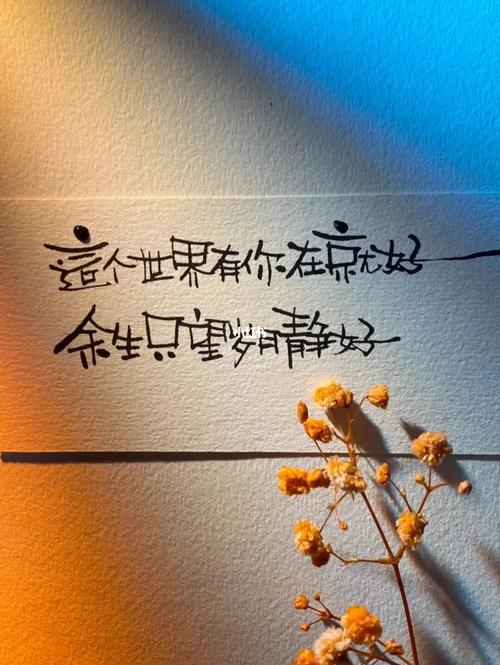 這个世界有你在就好
余生只望岁月静好